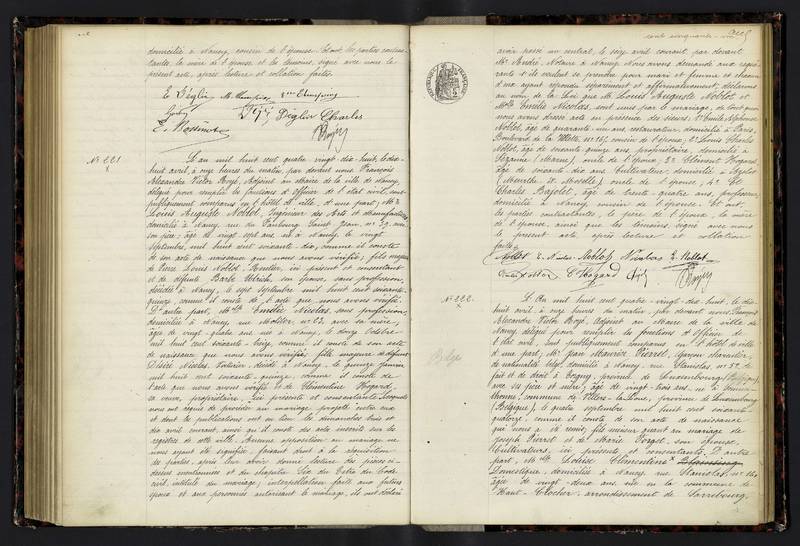 domicilié à Nancy, cousin de l'épouse. Et ont, les parties contrac-
tantes, la mère de l'épouse et les témoins, signé avec nous le
présent acte, après lecture et collation faites.
Déglin Charles
E. Rossinot
N° 221
L'an mil huit cent quatre vingt dix huit, le dix-
huit avril, à onze heures du matin, par devant nous François
Alexandre Victor Boyé, Adjoint au Maire de la ville de Nancy,
délégué pour remplir les fonctions d'Officier de l'état civil, sont
publiquement comparus en l'hôtel de ville, d'une part, Mr
Louis Auguste Noblot, Ingénieur des Arts et Manufactures,
domicilié à Nancy, rue du Faubourg Saint Jean, n° 39, avec
son père; âgé de vingt sept ans, né à Nancy le vingt
septembre, mil huit cent soixante-dix, comme il conste
de son acte de naissance que nous avons vérifié; fils majeur
de Pierre Louis Noblot, Hôtelier, ici présent et consentant
et de défunte Barbe Ulrich, son épouse, sans profession,
décédée à Nancy, le sept septembre mil huit cent quatre-vingt
quinze, comme il conste de l'acte que nous avons vérifié.
D'autre part, Mlle Emilie Nicolas, sans profession,
domiciliée à Nancy, rue Molitor, n° 63, avec sa mère,
âgée de vingt-quatre ans, née à Nancy, le douze Octobre
mil huit cent soixante-treize, comme il conste de son acte
de naissance que nous avons vérifié; fille majeure de défunt
Désiré Nicolas, Voiturier, décédé à Nancy, le quinze janvier
mil huit cent soixante-quinze, comme il conste de
l'acte que nous avons vérifié et de Clémentine Hogard,
sa veuve, propriétaire, ici présente et consentante. Lesquels
nous ont requis de procéder au mariage projeté entre eux
et dont les publications ont eu lieu les dimanches trois et
dix avril courant, ainsi qu'il conste des actes inscrits sur les
registres de cette ville. Aucune opposition au mariage ne
nous ayant été signifiée, faisant droit à la réquisition
des parties, après leur avoir donné lecture des pièces ci-
dessus mentionnées et du chapitre Six du Titre du Code
civil, intitulé du mariage; interpellation faite aux futurs
époux et aux personnes autorisant le mariage, ils ont déclaré
cent cinquante-un
avoir passé un contrat, le seize avril courant, par devant
Me André, Notaire à Nancy. Nous avons demandé aux requé-
rants s'ils veulent se prendre pour mari et femme et chacun
d'eux ayant répondu séparément et affirmativement, déclarons
au nom de la Loi que Mr Louis Auguste Noblot et
Mlle Emilie Nicolas, sont unis par le mariage, de tout quoi
nous avons dressé acte en présence des sieurs: 1° Emile Alphonse
Noblot, âgé de quarante-un ans, restaurateur, domicilié à Paris,
Boulevard de la Villette, n° 117, cousin de l'époux, 2° Louis Charles
Noblot, âgé de soixante quinze ans, propriétaire, domicilié à
Sézanne (Marne), oncle de l'époux, 3° Clément Hogard,
âgé de soixante-dix ans, Cultivateur, domicilié à
(Meurthe et Moselle), oncle de l'épouse, 4° Et
Charles Bajolet, âgé de trente-quatre ans, professeur,
domicilié à Nancy, cousin de l'épouse. Et ont,
les parties contractantes, le père de l'époux, la mère
de l'épouse, ainsi que les témoins, signé avec nous
le présent acte, après lecture et collation
faites.
Noblot E. Nicolas Noblot Nicolas L. Noblot
C. Hogard
N° 222.
Belge
L'An mil huit cent quatre-vingt-dix-huit, le dix-
huit avril, à onze heures du matin, par devant nous, François
Alexandre Victor Boyé, Adjoint au Maire de la ville de
Nancy, délégué pour remplir les fonctions d'Officier de
l'état civil, sont publiquement comparus en l'hôtel de ville
d'une part, Mr Jean Maurice Pierret, Garçon charcutier,
de nationalité belge, domicilié à Nancy, rue Stanislas, n° 52, de
fait et de droit à Sugny, province de Luxembourg (Belgique),
avec ses père et mère, âgé de vingt-trois ans, né à
thonne, commune de Villers-la-Loue, province de Luxembourg
(Belgique), le quatre septembre mil huit cent soixante-
quatorze, comme il conste de son acte de naissance
qui nous a été remis, fils mineur, quant au mariage de
Joseph Pierret et de Marie Forget, son épouse,
Cultivateurs, ici présents et consentants. D'autre
part, Mlle Louise Clémentine
Domestique, domiciliée à Nancy, rue Stanislas, n°
âgée de vingt-deux ans, née en la commune de
Haut-Clocher, arrondissement de Sarrebourg,